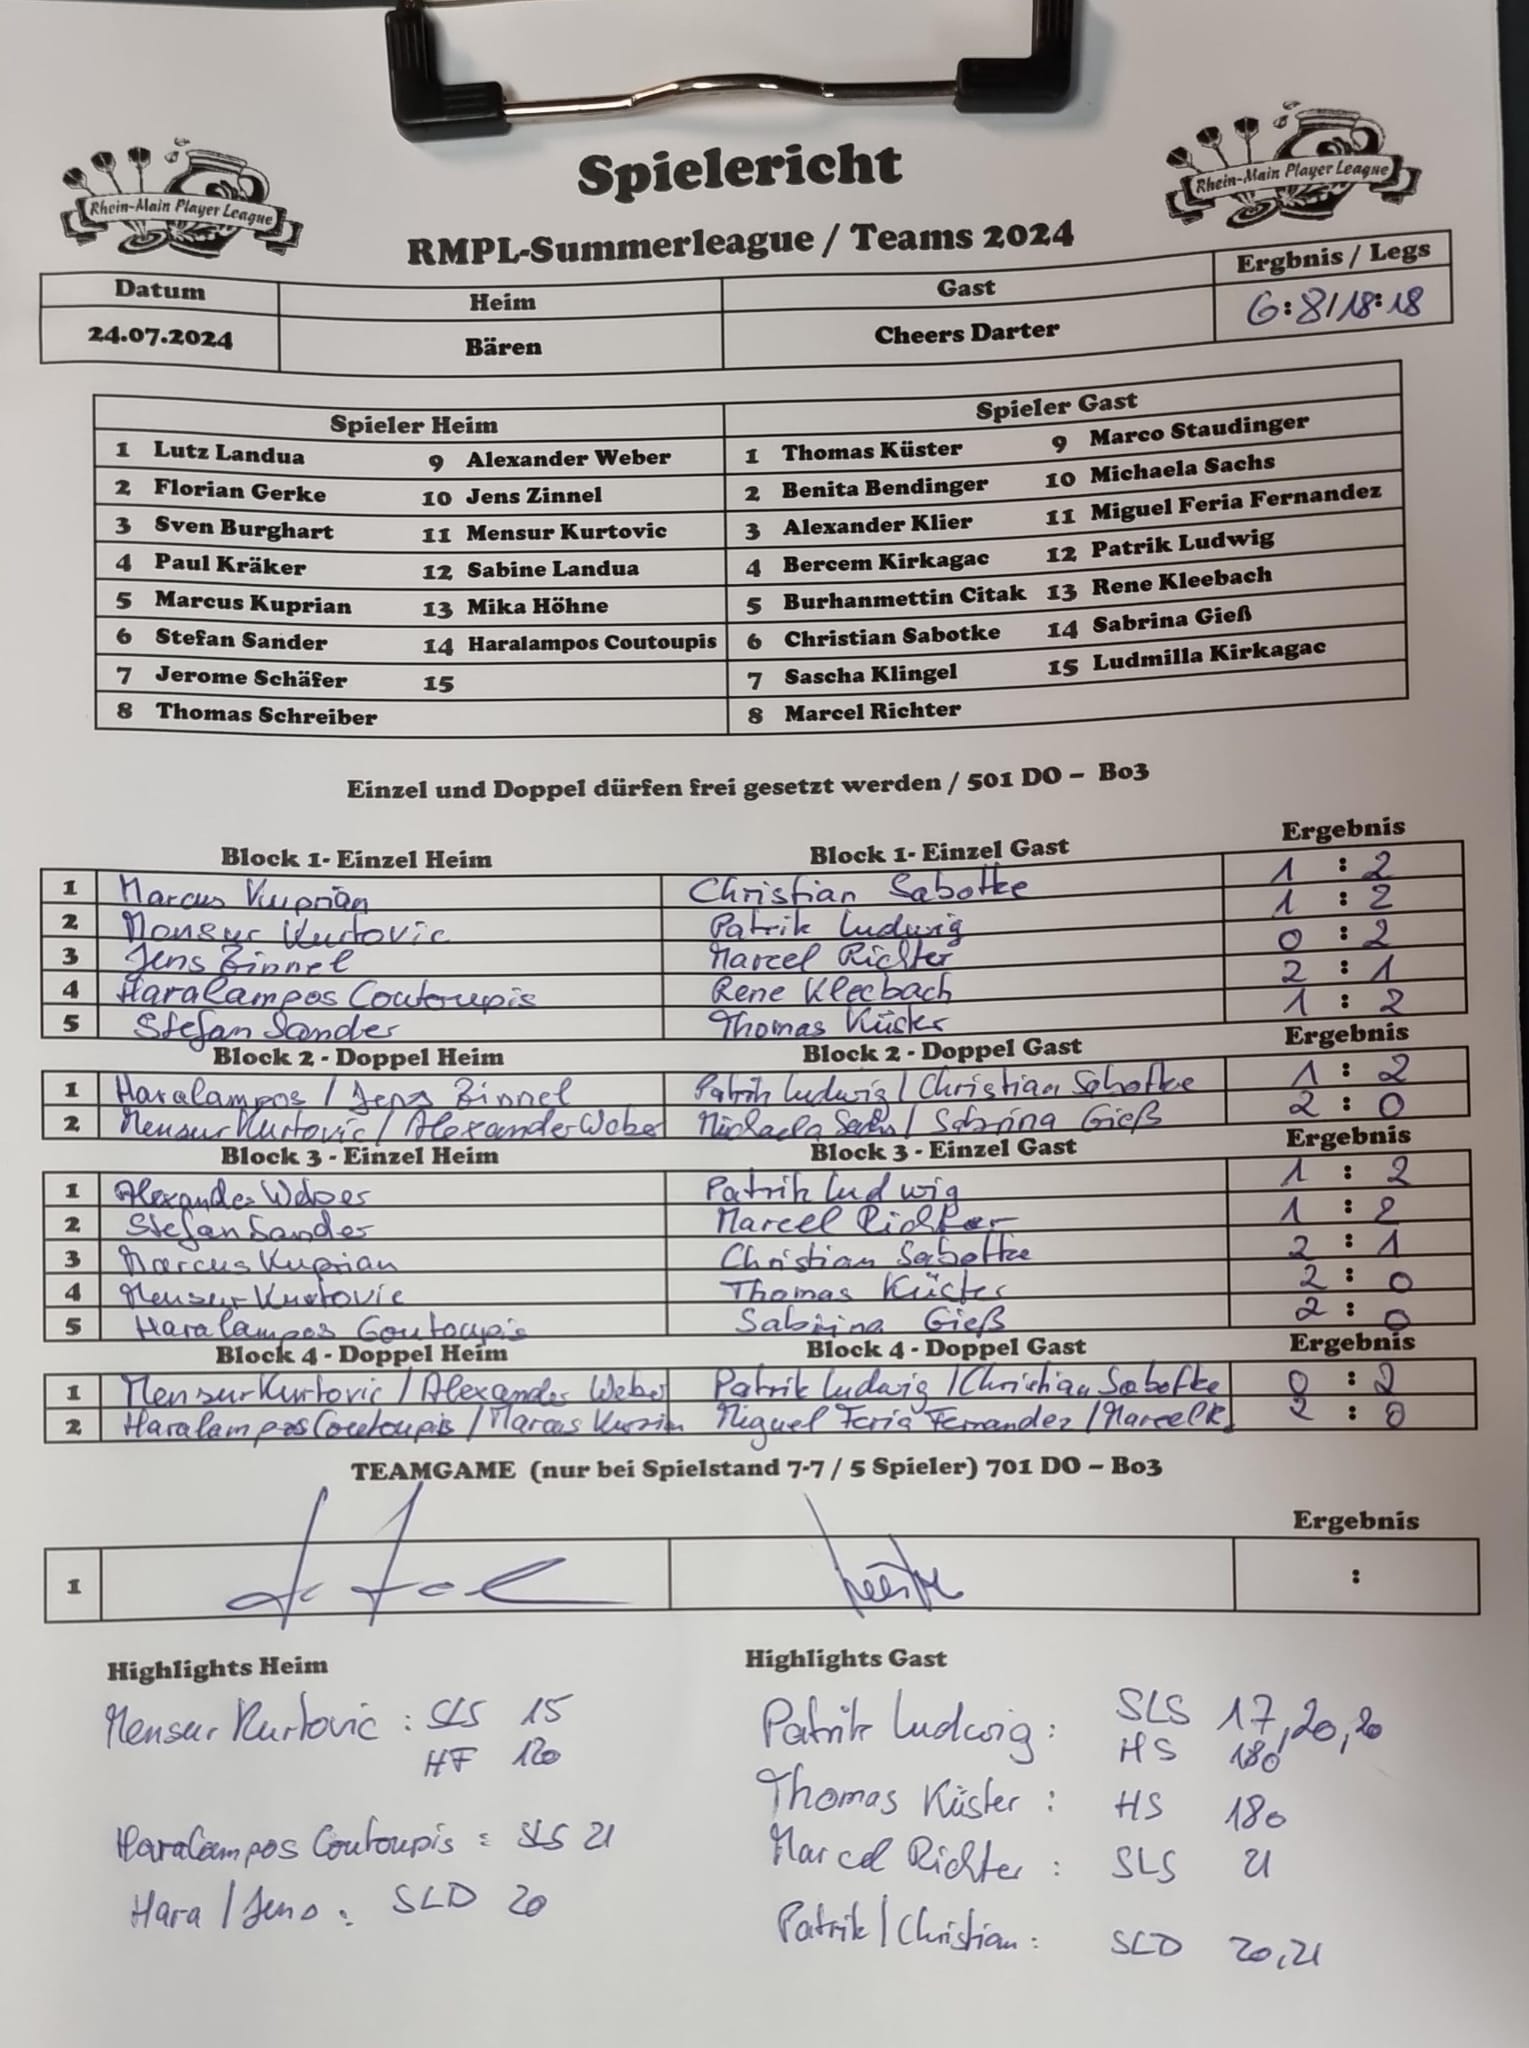 Spielericht
Rhein-Main Player League
Rhein-Main Player League
RMPL-Summerleague / Teams 2024
Datum Heim Gast Ergbnis / Legs
24.07.2024 Bären Cheers Darter 6:8/18:18
Spieler Heim Spieler Gast
1 Lutz Landua 9 Alexander Weber 1 Thomas Küster 9 Marco Staudinger
2 Florian Gerke 10 Jens Zinnel 2 Benita Bendinger 10 Michaela Sachs
3 Sven Burghart 11 Mensur Kurtovic 3 Alexander Klier 11 Miguel Feria Fernandez
4 Paul Kräker 12 Sabine Landua 4 Bercem Kirkagac 12 Patrik Ludwig
5 Marcus Kuprian 13 Mika Höhne 5 Burhanmettin Citak 13 Rene Kleebach
6 Stefan Sander 14 Haralampos Coutoupis 6 Christian Sabotke 14 Sabrina Gieß
7 Jerome Schäfer 15 7 Sascha Klingel 15 Ludmilla Kirkagac
8 Thomas Schreiber 8 Marcel Richter
Einzel und Doppel dürfen frei gesetzt werden / 501 DO – Bo3
Block 1- Einzel Heim Block 1- Einzel Gast Ergebnis
1 Marcus Kuprian Christian Sabotke 1 : 2
2 Mensur Kurtovic Patrik Ludwig 1 : 2
3 Jens Zinnel Marcel Richter 0 : 2
4 Haralampos Coutoupis Rene Kleebach 2 : 1
5 Stefan Sander Thomas Küster 1 : 2
Block 2 - Doppel Heim Block 2 - Doppel Gast Ergebnis
1 Haralampos / Jens Zinnel Patrik Ludwig / Christian Sabotke 1 : 2
2 Mensur Kurtovic / Alexander Weber Michaela Sachs / Sabrina Gieß 2 : 0
Block 3 - Einzel Heim Block 3 - Einzel Gast Ergebnis
1 Alexander Weber Patrik Ludwig 1 : 2
2 Stefan Sander Marcel Richter 1 : 2
3 Marcus Kuprian Christian Sabotke 2 : 1
4 Mensur Kurtovic Thomas Küster 2 : 0
5 Haralampos Coutoupis Sabrina Gieß 2 : 0
Block 4 - Doppel Heim Block 4 - Doppel Gast Ergebnis
1 Mensur Kurtovic / Alexander Weber Patrik Ludwig / Christian Sabotke 0 : 2
2 Haralampos Coutoupis / Marcus Miguel Feria Fernandez / Marcel R. 2 : 0
TEAMGAME (nur bei Spielstand 7-7 / 5 Spieler) 701 DO – Bo3
Ergebnis
1 :
Highlights Heim Highlights Gast
Mensur Kurtovic : SLS 15 Patrik Ludwig : SLS 17,20,20
HF 120 HS 180
Thomas Küster : HS 180
Haralampos Coutoupis : SLS 21 Marcel Richter : SLS 21
Hara / Jens : SLD 20 Patrik / Christian : SLD 20,21